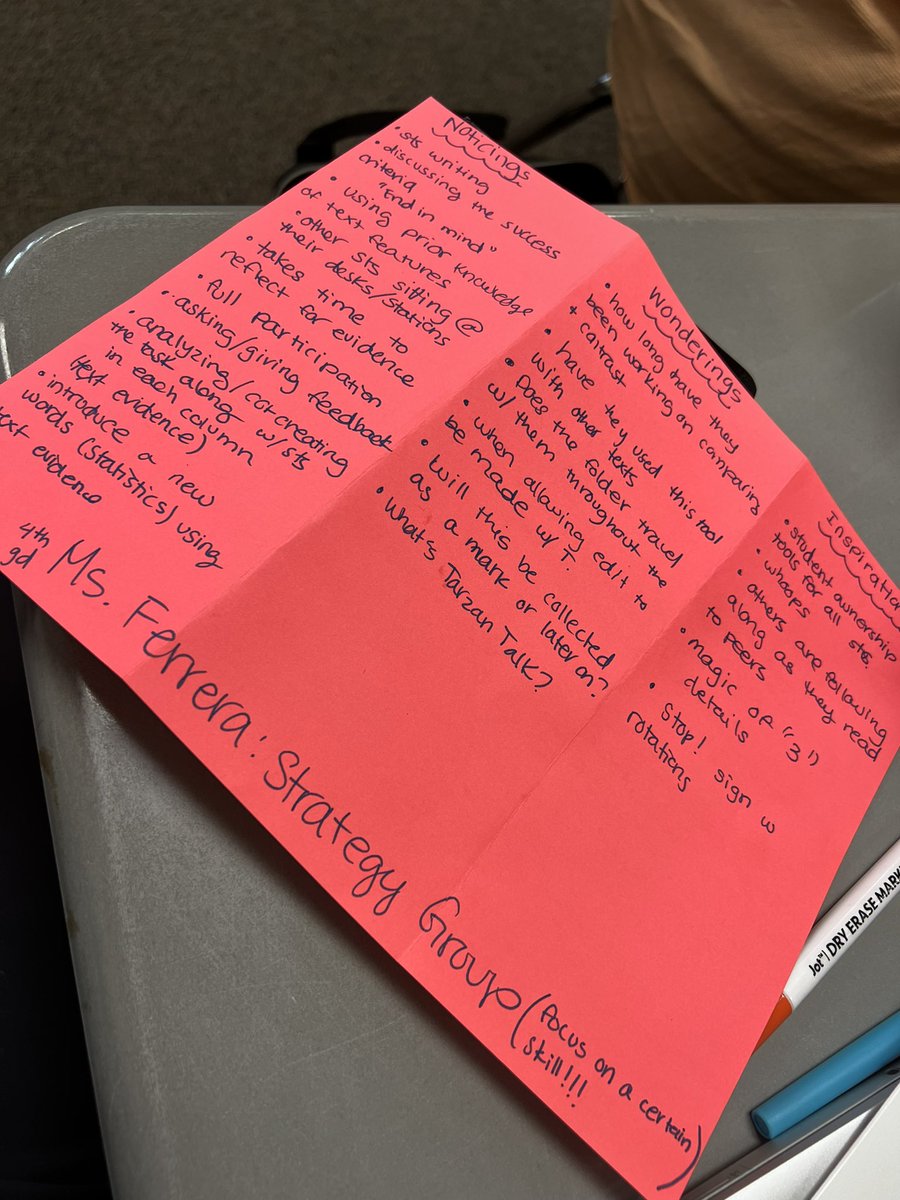 Noticings
• sts writing
• discussing the success
criteria "End in mind"
• using prior knowledge
of text features
• other sts sitting @
their desks/stations
• takes time to
reflect for evidence
• full participation
• asking/giving feedback
• analyzing/co-creating
the task along w/sts
in each column
(text evidence)
• introduce a new
words (statistics) using
text evidence
Wonderings
• how long have they
been working on comparing
+ contrast
• have they used this tool
with other texts
• Does the folder travel
w/ them throughout the
• when allowing edit to
be made w/ T.
• will this be collected
as a mark or later on?
• What's Tarzan Talk?
Inspiration
• student ownership
tools for all sts.
• whoops
• others are following
along as they read
to peers
• magic of "3"
details
• Stop! sign w
rotations
4th
gd
Ms. Ferrera: Strategy Group (focus on a certain
skill!!!)
Jot™ | DRY ERASE MARK